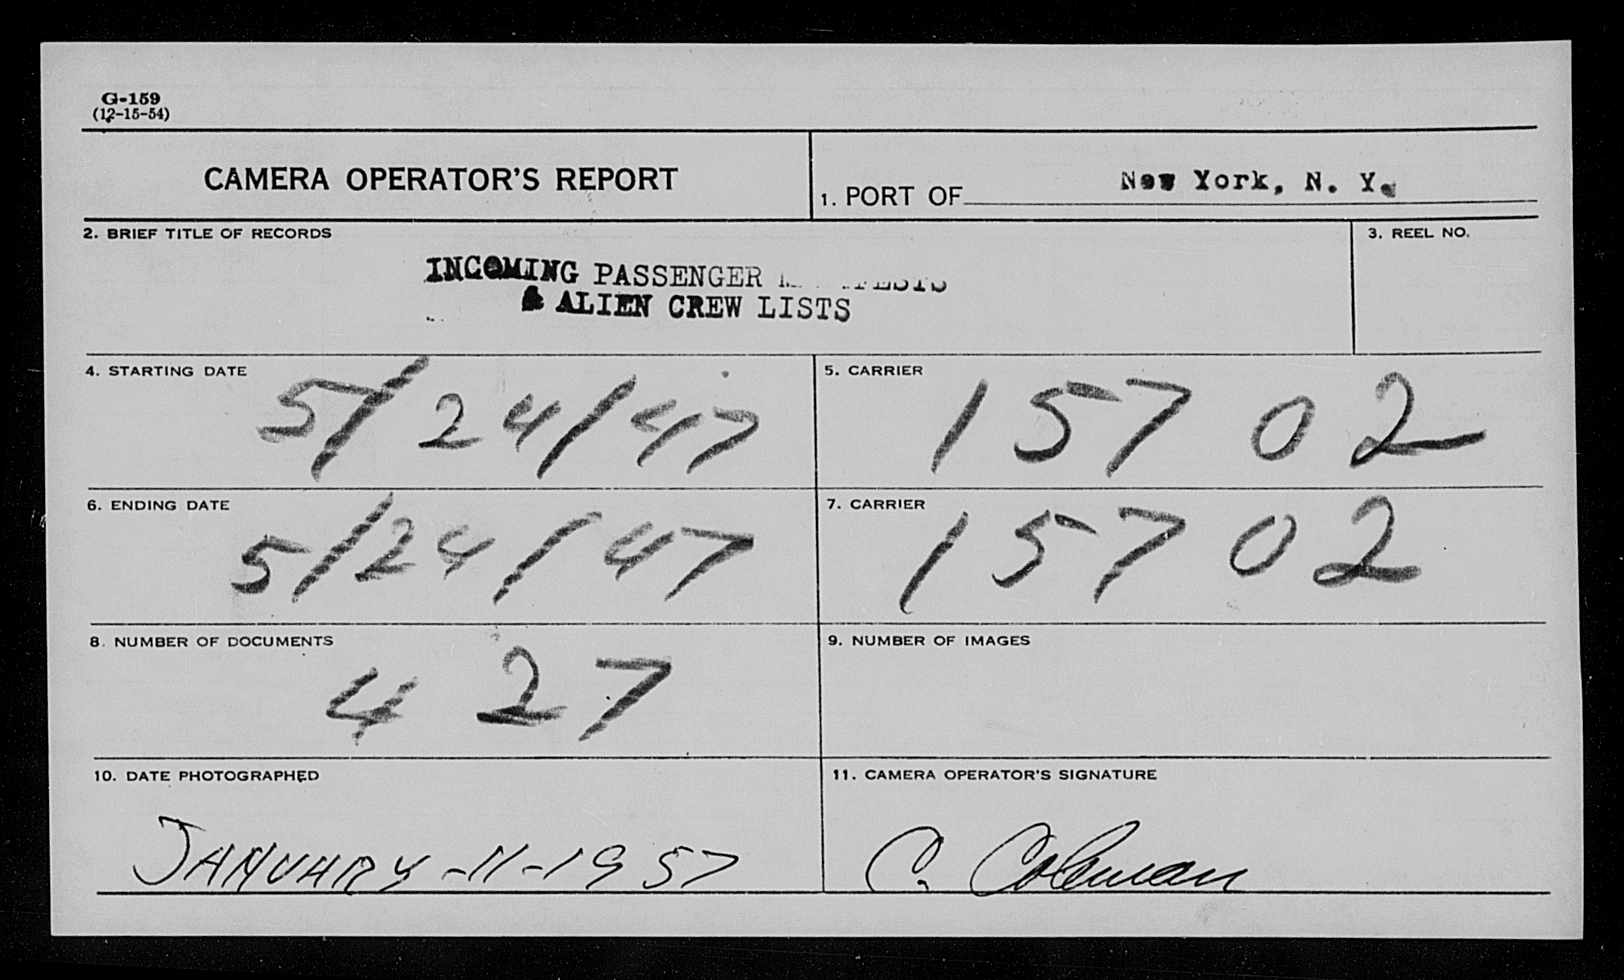 G-159
(12-15-54)
CAMERA OPERATOR'S REPORT
1. PORT OF New York, N. Y.
2. BRIEF TITLE OF RECORDS
3. REEL NO.
INCOMING PASSENGER
& ALIEN CREW LISTS
4. STARTING DATE
5/24/47
5. CARRIER
15702
6. ENDING DATE
5/24/47
7. CARRIER
15702
8. NUMBER OF DOCUMENTS
427
9. NUMBER OF IMAGES
10. DATE PHOTOGRAPHED
JANUARY-11-1957
11. CAMERA OPERATOR'S SIGNATURE
C. Coleman